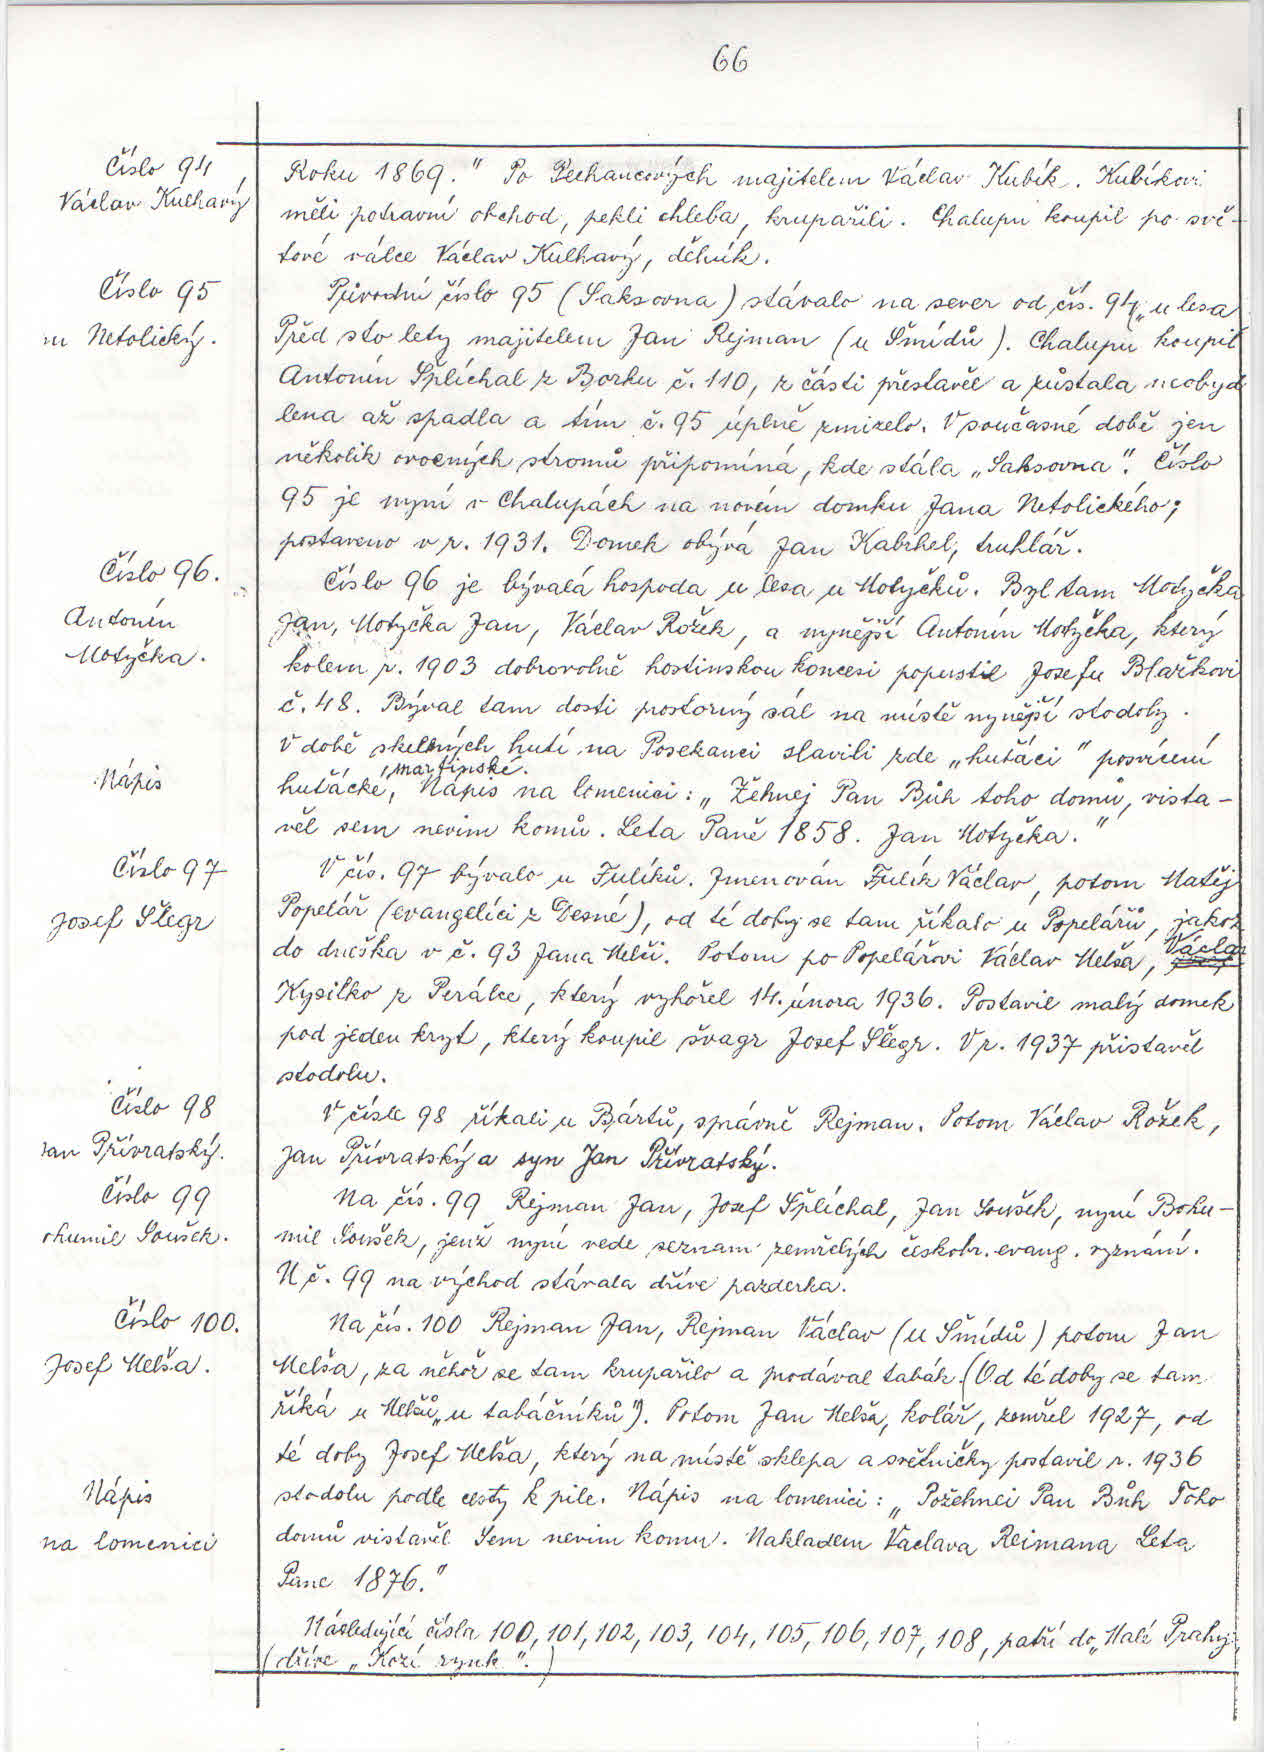 66
Číslo 94,
Václav Kulhavý
Roku 1869." Po Pechancových majitelem Václav Kubík. Kubíkovi
měli potravní obchod, pekli chleba, krupařili. Chalupu koupil po svě-
tové válce Václav Kulhavý, dělník.
Číslo 95
Netolický.
Původní číslo 95 (Saksovna) stávalo na sever od čís. 94 „u lesa
Před sto lety majitelem Jan Rejman (u Šmídů). Chalupu koupil
Antonín Šplíchal z Borku č. 110, z části přestavěl a zůstala neobyd
lena až spadla a tím č. 95 úplně zmizelo. V současné době jen
několik ovocných stromů připomíná, kde stála „Saksovna". Číslo
95 je nyní v Chalupách na novém domku Jana Netolického;
postaveno v r. 1931. Domek obývá Jan Kabrhel, truhlář.
Číslo 96.
Antonín
Motyčka.
Číslo 96 je bývalá hospoda u lesa u Motyčků. Byl tam Motyčka
Jan, Motyčka Jan, Václav Rožek, a nynější Antonín Motyčka, který
kolem r. 1903 dobrovolně hostinskou koncesi popustil Josefu Blažkovi
č. 48. Býval tam dosti prostorný sál na místě nynější stodoly.
V době skelných hutí na Posekanci slavili zde „huťáci" posvícení
martinské.
Nápis
huťácké, Nápis na lomenici: „Žehnej Pan Bůh toho domů, vista-
věl sem nevim komů. Leta Paně 1858. Jan Motyčka."
Číslo 97
Josef Šlegr
V čís. 97 bývalo u Fulíků. Jmenován Fulík Václav, potom Matěj
Popelář (evangelíci z Desné), od té doby se tam říkalo u Popelářů, jakož
do dneška v č. 93 Jana Melši. Potom po Popelářovi Václav Melša, Václav
Kysilko z Perálce, který vyhořel 14. února 1936. Postavil malý domek
pod jeden kryt, který koupil švagr Josef Šlegr. V r. 1937 přistavěl
stodolu.
Číslo 98
Jan Přívratský.
V čísle 98 říkali u Bártů, správně Rejman. Potom Václav Rožek,
Jan Přívratský a syn Jan Přívratský.
Číslo 99
ohumil Soušek.
Na čís. 99 Rejman Jan, Josef Šplíchal, Jan Soušek, nyní Bohu-
mil Soušek, jenž nyní vede seznam zemřelých českobr. evang. vyznání.
U č. 99 na východ stávala dříve pazderka.
Číslo 100.
Josef Melša.
Na čís. 100 Rejman Jan, Rejman Václav (u Šmídů) potom Jan
Melša, za něhož se tam krupařilo a prodával tabák. (Od té doby se tam
říká u Melšů „u tabáčníků"). Potom Jan Melša, kolář, zemřel 1927, od
té doby Josef Melša, který na místě sklepa a světničky postavil r. 1936
Nápis
na lomenici
stodolu podle cesty k pile. Nápis na lomenici: „Požehnei Pan Bůh Toho
domů vistavěl Sem nevim komu. Nakladem Vaclava Reimana Leta
Pane 1876."
Následující čísla 100, 101, 102, 103, 104, 105, 106, 107, 108, patří do „Malé Prahy,
(dříve „Kozí rynk".)